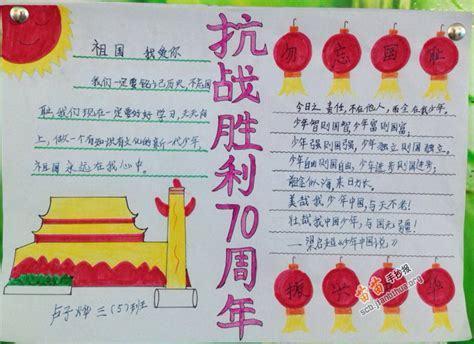 祖国 我爱你
我们一定要铭记历史,不忘国
耻,我们现在一定要好好学习,天天向
上,做一个有知识有文化的新一代少年,
祖国永远在我心中。
卢子 三(5)班
抗战胜利70周年
勿忘国耻
今日之责任,不在他人,而全在我少年。
少年智则国智,少年富则国富;
少年强则国强,少年独立则国独立;
少年自由则国自由,少年进步则国进步;
前途似海,来日方长。
美哉我少年中国,与天不老!
壮哉我中国少年,与国无疆!
——梁启超《少年中国说》
振兴
苗苗手抄报
scb.jianbihua.org